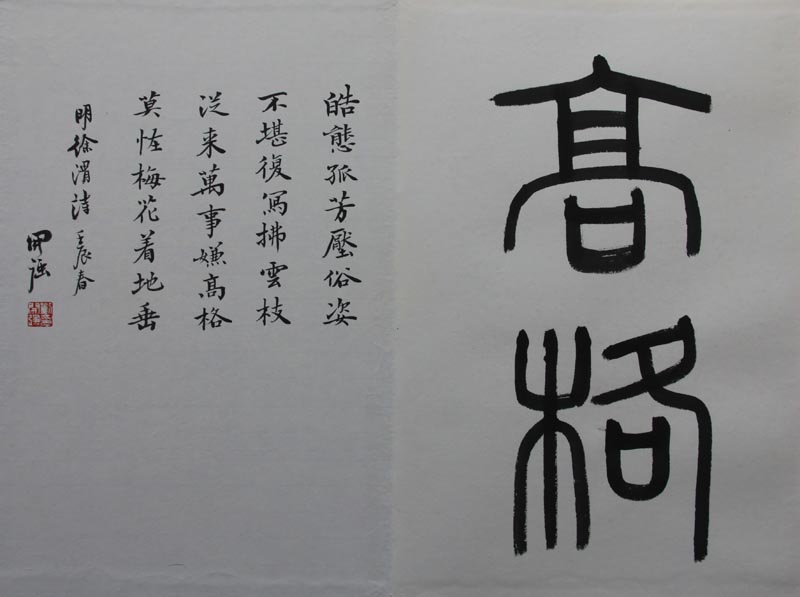 高格
皓態孤芳壓俗姿
不堪復寫拂雲枝
從来萬事嫌高格
莫怪梅花着地垂
明徐渭詩 壬辰春
開強